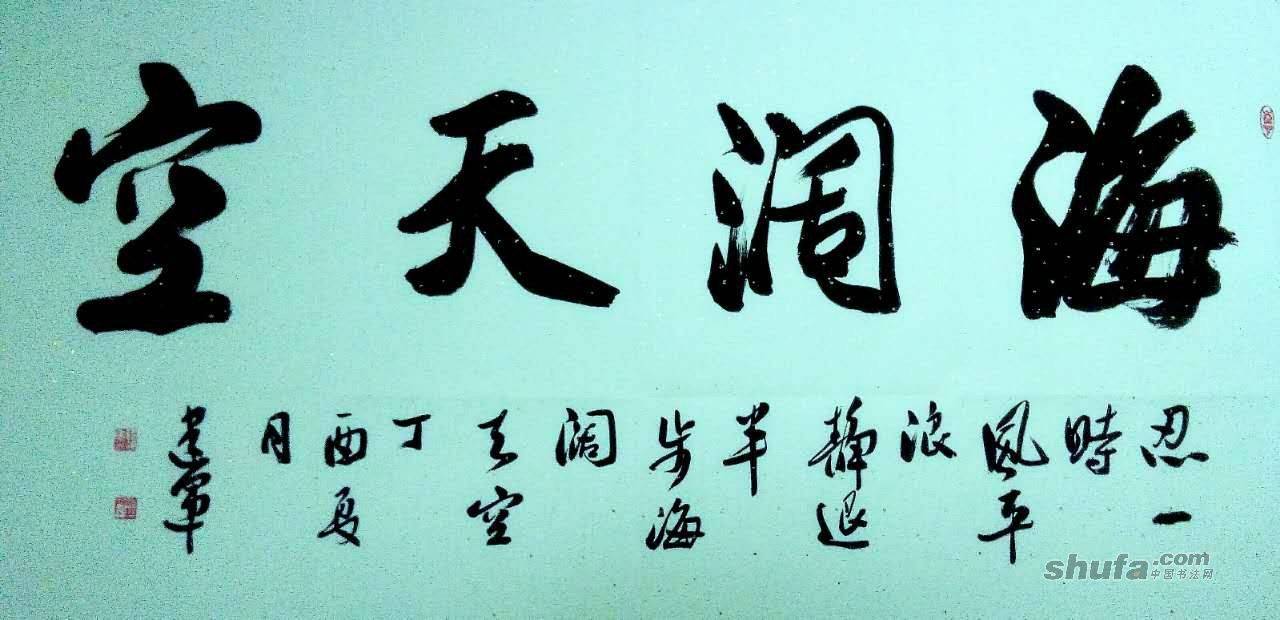 海阔天空
忍一
時
風平
浪
静退
半
步海
阔
天空
丁
酉夏
月
建軍
shufa.com
中国书法网